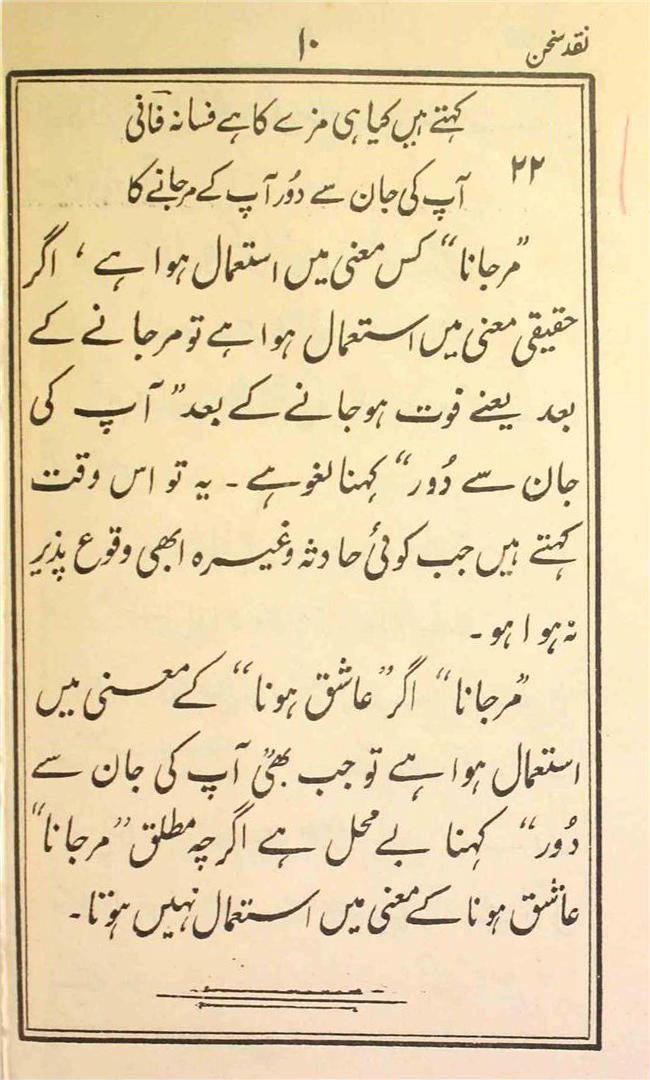 نقد سخن
۱۰
کہتے ہیں کیا ہی مزے کا ہے فسانہ فانؔی
۲۲
آپ کی جان سے دُور آپ کے مرجانے کا
”مرجانا“ کس معنی میں استعمال ہوا ہے ، اگر
حقیقی معنی میں استعمال ہوا ہے تو مرجانے کے
بعد یعنے فوت ہوجانے کے بعد ”آپ کی
جان سے دُور“ کہنا لغو ہے ۔ یہ تو اس وقت
کہتے ہیں جب کوئی حادثہ وغیرہ ابھی وقوع پذیر
نہ ہوا ہو ۔
”مرجانا“ اگر ”عاشق ہونا“ کے معنی میں
استعمال ہوا ہے تو جب بھی ”آپ کی جان سے
دُور“ کہنا بے محل ہے اگرچہ مطلق ”مرجانا“
عاشق ہونا کے معنی میں استعمال نہیں ہوتا ۔